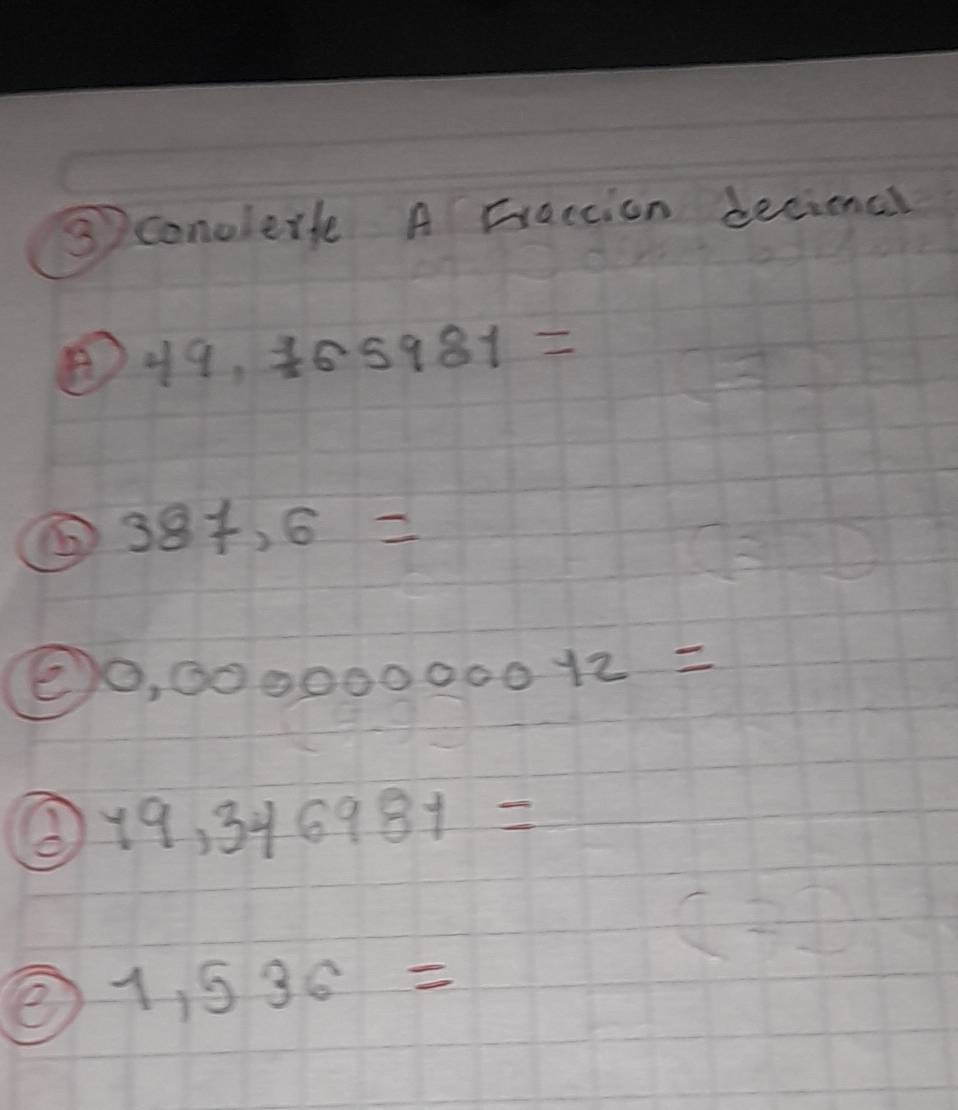 3) convierte A Fraccion decimal
A) 49,765981 =
b) 387,6 =
c) 0,00000000012 =
d) 19,346981 =
e) 1,536 =